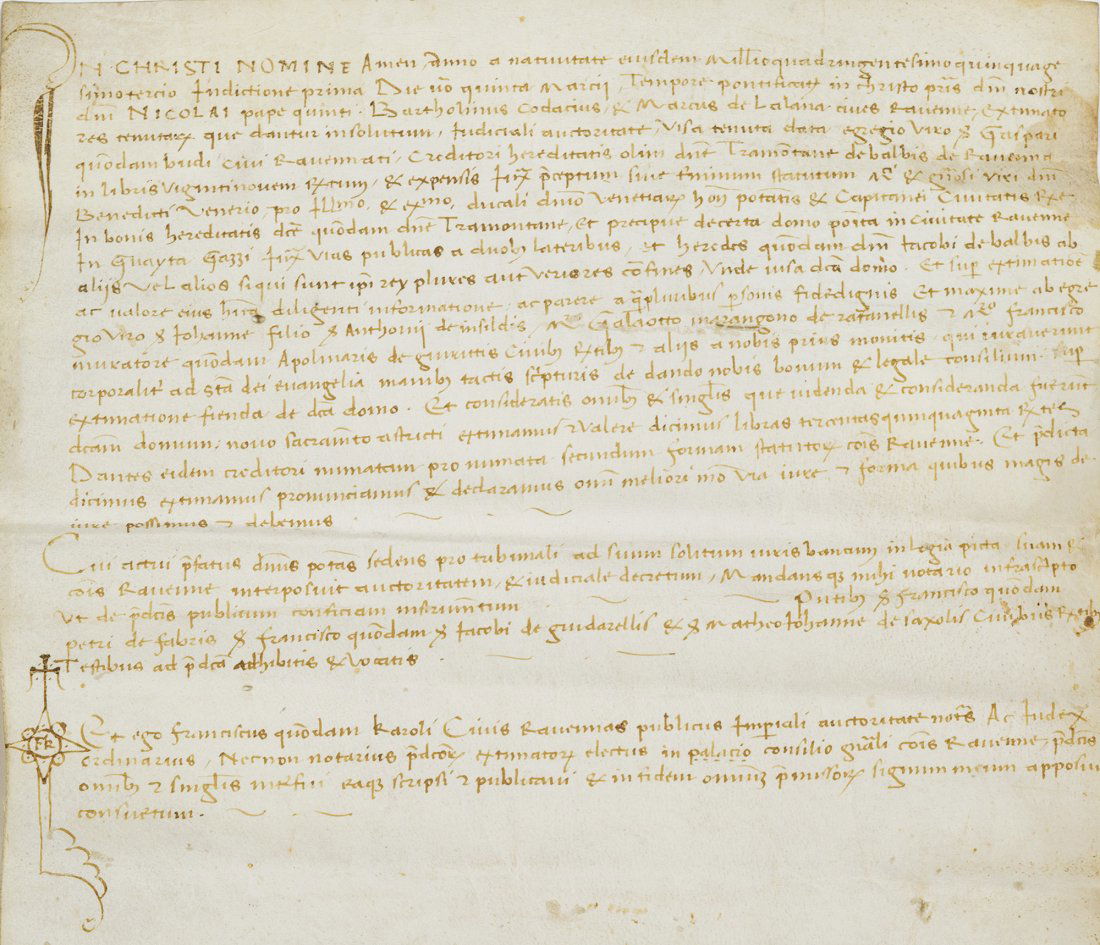 IN CHRISTI NOMINE Amen, Anno a nativitate eiusdem Millioquadringentesimoquinquage
simotercio Indictione prima Die vo quinta Marcii, Tempore pontificatus in christo pris dni nostri
dni NICOLAI pape quinti. Bartholinus Codacius, & Marcus de Lalana cives Ravenne, Extimato
res tenutarum que dantur insolutum, Iudiciali auctoritate, Visa tenuta data egregio Viro Gaspari
quondam budi Civi Ravennati, Creditori hereditatis olim dne Tramontane de balbis de Ravenna
in libris vigintinovem & expensis Iux preceptum sive terminum statutum & viri dni
Benedicti Venerio, pro Illmo, & exmo, ducali dnio Venetiar hon potatis & Capitanei Civitatis Rave
In bonis hereditatis dce quondam dne Tramontane, Et precipue decerta domo posita in civitate Ravenne
In Guayta Gazzi Iux vias publicas a duobus lateribus, et heredes quondam dni Iacobi de balbis ab
aliis vel alios siqui sunt ipi rey plures aut veriores confines Unde visa dca domo. Et super extimatioe
ac valore eius hita diligenti informatione, ac parere a qpluribus personis fidedignis Et maxime ab egre
gio Viro Iohanne filio Anthonii de insildis, Galaotto marangono de rafanellis & francisco
muratore quondam Apolinaris de giurittis Civibus & aliis a nobis prius monitis, qui iuraverunt
corporalit ad sta dei evangelia manibus tactis scripturis de dando nobis bonum & legale consilium super
extimatione fienda de dca domo. Et consideratis omnibus & singlis que videnda & consideranda fuerunt
dcam domum, novo sacramto astricti extimamus & valere dicimus libras tercentasquinquaginta
Dantes eidem creditori numatam pro numata secundum formam statutor cois Ravenne. Et pdicta
dicimus extimamus pronunciamus & declaramus omni meliori mo via iure & forma quibus magis de
iure possumus & debemus
Cui actui prefatus dnus potas sedens pro tribunali ad suum solitum iuris bancum in logia picta
cois Ravenne interposuit auctoritatem, & iudiciale decretum, Mandansque mihi notario infrascripto
Ut de predcis publicum conficiam instrumtum Pntibus francisco quondam
petri de fabris francisco quondam Iacobi de guidarellis & Matheo Iohanne de saxolis Civibus
Testibus ad predca adhibitis & vocatis
FR
Et ego franciscus quondam Karoli Civis Ravennas publicus Imperiali auctoritate notrs Ac Iudex
ordinarius, Necnon notarius predcor extimator electus in palacio consilio gnali cois Ravenne, predcis
omnibus & singlis interfui eaque scripsi & publicavi & in fidem omnium premissor signum meum apposui
consuetum.